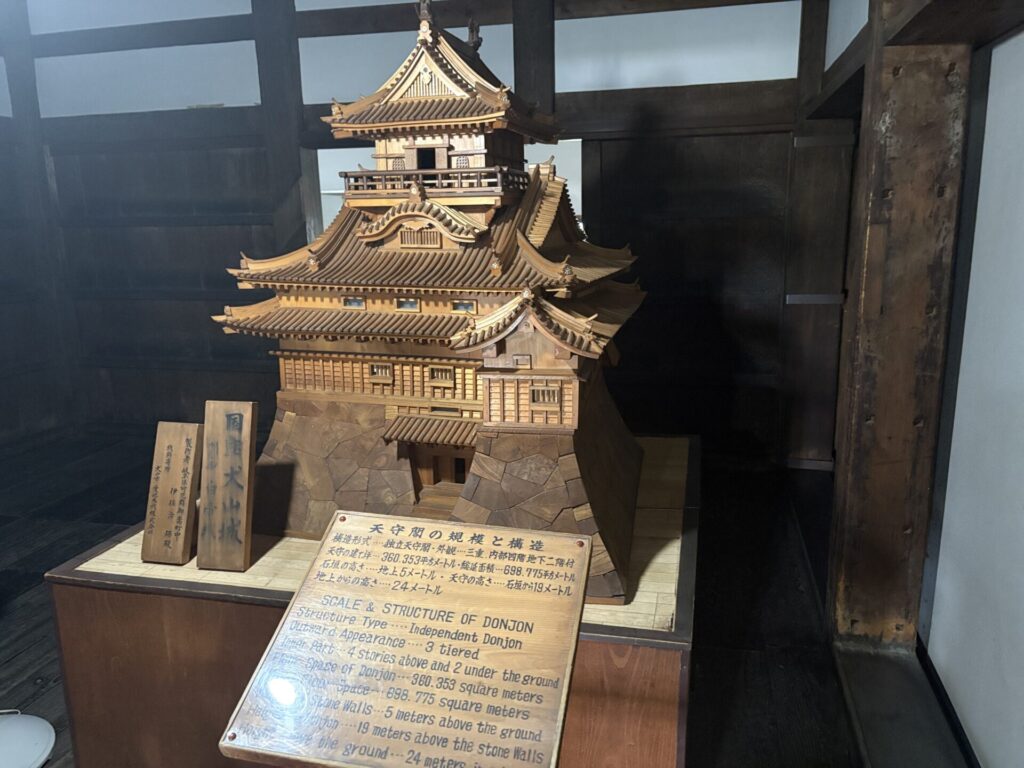 国宝犬山城
天守閣の規模と構造
構造形式…独立天守閣・外観…三重 内部四階地下二階付
天守の建て坪…360.353平方メートル・総延面積…698.775平方メートル
石垣の高さ…地上5メートル・天守の高さ…石垣から19メートル
地上からの高さ…24メートル
SCALE & STRUCTURE OF DONJON
Structure Type ···· Independent Donjon
Outward Appearance ··· 3 tiered
part ··· 4 stories above and 2 under the ground
Space of Donjon ··· 360.353 square meters
Space ··· 698.775 square meters
Stone Walls ··· 5 meters above the ground
··· 19 meters above the stone Walls
the ground ··· 24 meters